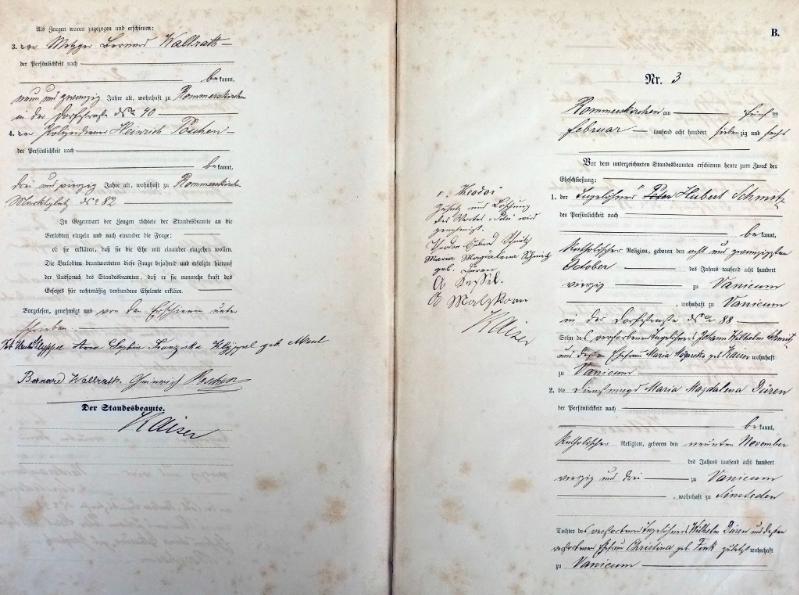 Als Zeugen waren zugezogen und erschienen:
3. der Metzger Bernard Wallrath
der Persönlichkeit nach
bekannt,
neun und zwanzig Jahre alt, wohnhaft zu Rommerskirchen
in der Dorfstraße No 40
4. der Heinrich Pöschen
der Persönlichkeit nach
bekannt,
drei und vierzig Jahre alt, wohnhaft zu Rommerskirchen
Marktplatz No 82
In Gegenwart der Zeugen richtete der Standesbeamte an die
Verlobten einzeln und nach einander die Frage:
ob sie erklären, daß sie die Ehe mit einander eingehen wollen.
Die Verlobten beantworteten diese Frage bejahend und erfolgte hierauf
der Ausspruch des Standesbeamten, daß er sie nunmehr kraft des
Gesetzes für rechtmäßig verbundene Eheleute erkläre.
Vorgelesen, genehmigt und von den Erschienenen unter
schrieben
Anna Sophia Franziska geb
Bernard Wallrath Heinrich
Der Standesbeamte.
Kaiser
B.
Nr. 3
Rommerskirchen am fünf ten
Februar tausend acht hundert siebenzig und sechs
Vor dem unterzeichneten Standesbeamten erschienen heute zum Zweck der
Eheschließung:
1. der Tagelöhner Hubert Schmitz
der Persönlichkeit nach
bekannt,
katholischer Religion, geboren den acht und zwanzigsten
October des Jahres tausend acht hundert
vierzig zu Vanicum
, wohnhaft zu Vanicum
in der Dorfstraße No 88
Sohn des verstorbenen Tagelöhners Johann Wilhelm Schmitz
und dessen Ehefrau Maria geb wohnhaft
zu Vanicum
2. die Dienstmagd Maria Magdalena Düren
der Persönlichkeit nach
bekannt,
katholischer Religion, geboren den neunten November
des Jahres tausend acht hundert
vierzig und drei zu Vanicum
, wohnhaft zu Sinsteden
Tochter des verstorbenen Tagelöhners Wilhelm Düren und dessen
verstorbenen Ehefrau Christina geb Fink zuletzt wohnhaft
zu Vanicum
Zusatz und Löschung
des Wortes wird
genehmigt.
Hubert Schmitz
Maria Magdalena Schmitz
geb. Düren
Kaiser